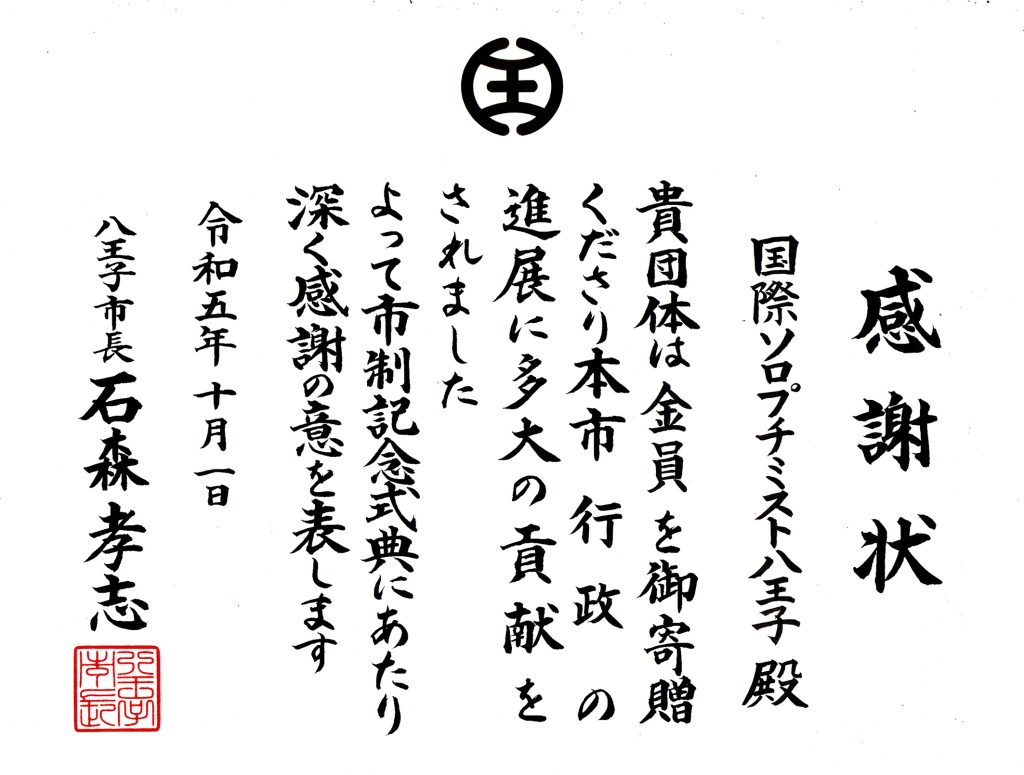 感謝状
国際ソロプチミスト八王子 殿
貴団体は金員を御寄贈
くださり本市行政の
進展に多大の貢献を
されました
よって市制記念式典にあたり
深く感謝の意を表します
令和五年十月一日
八王子市長 石森孝志
八王子市長